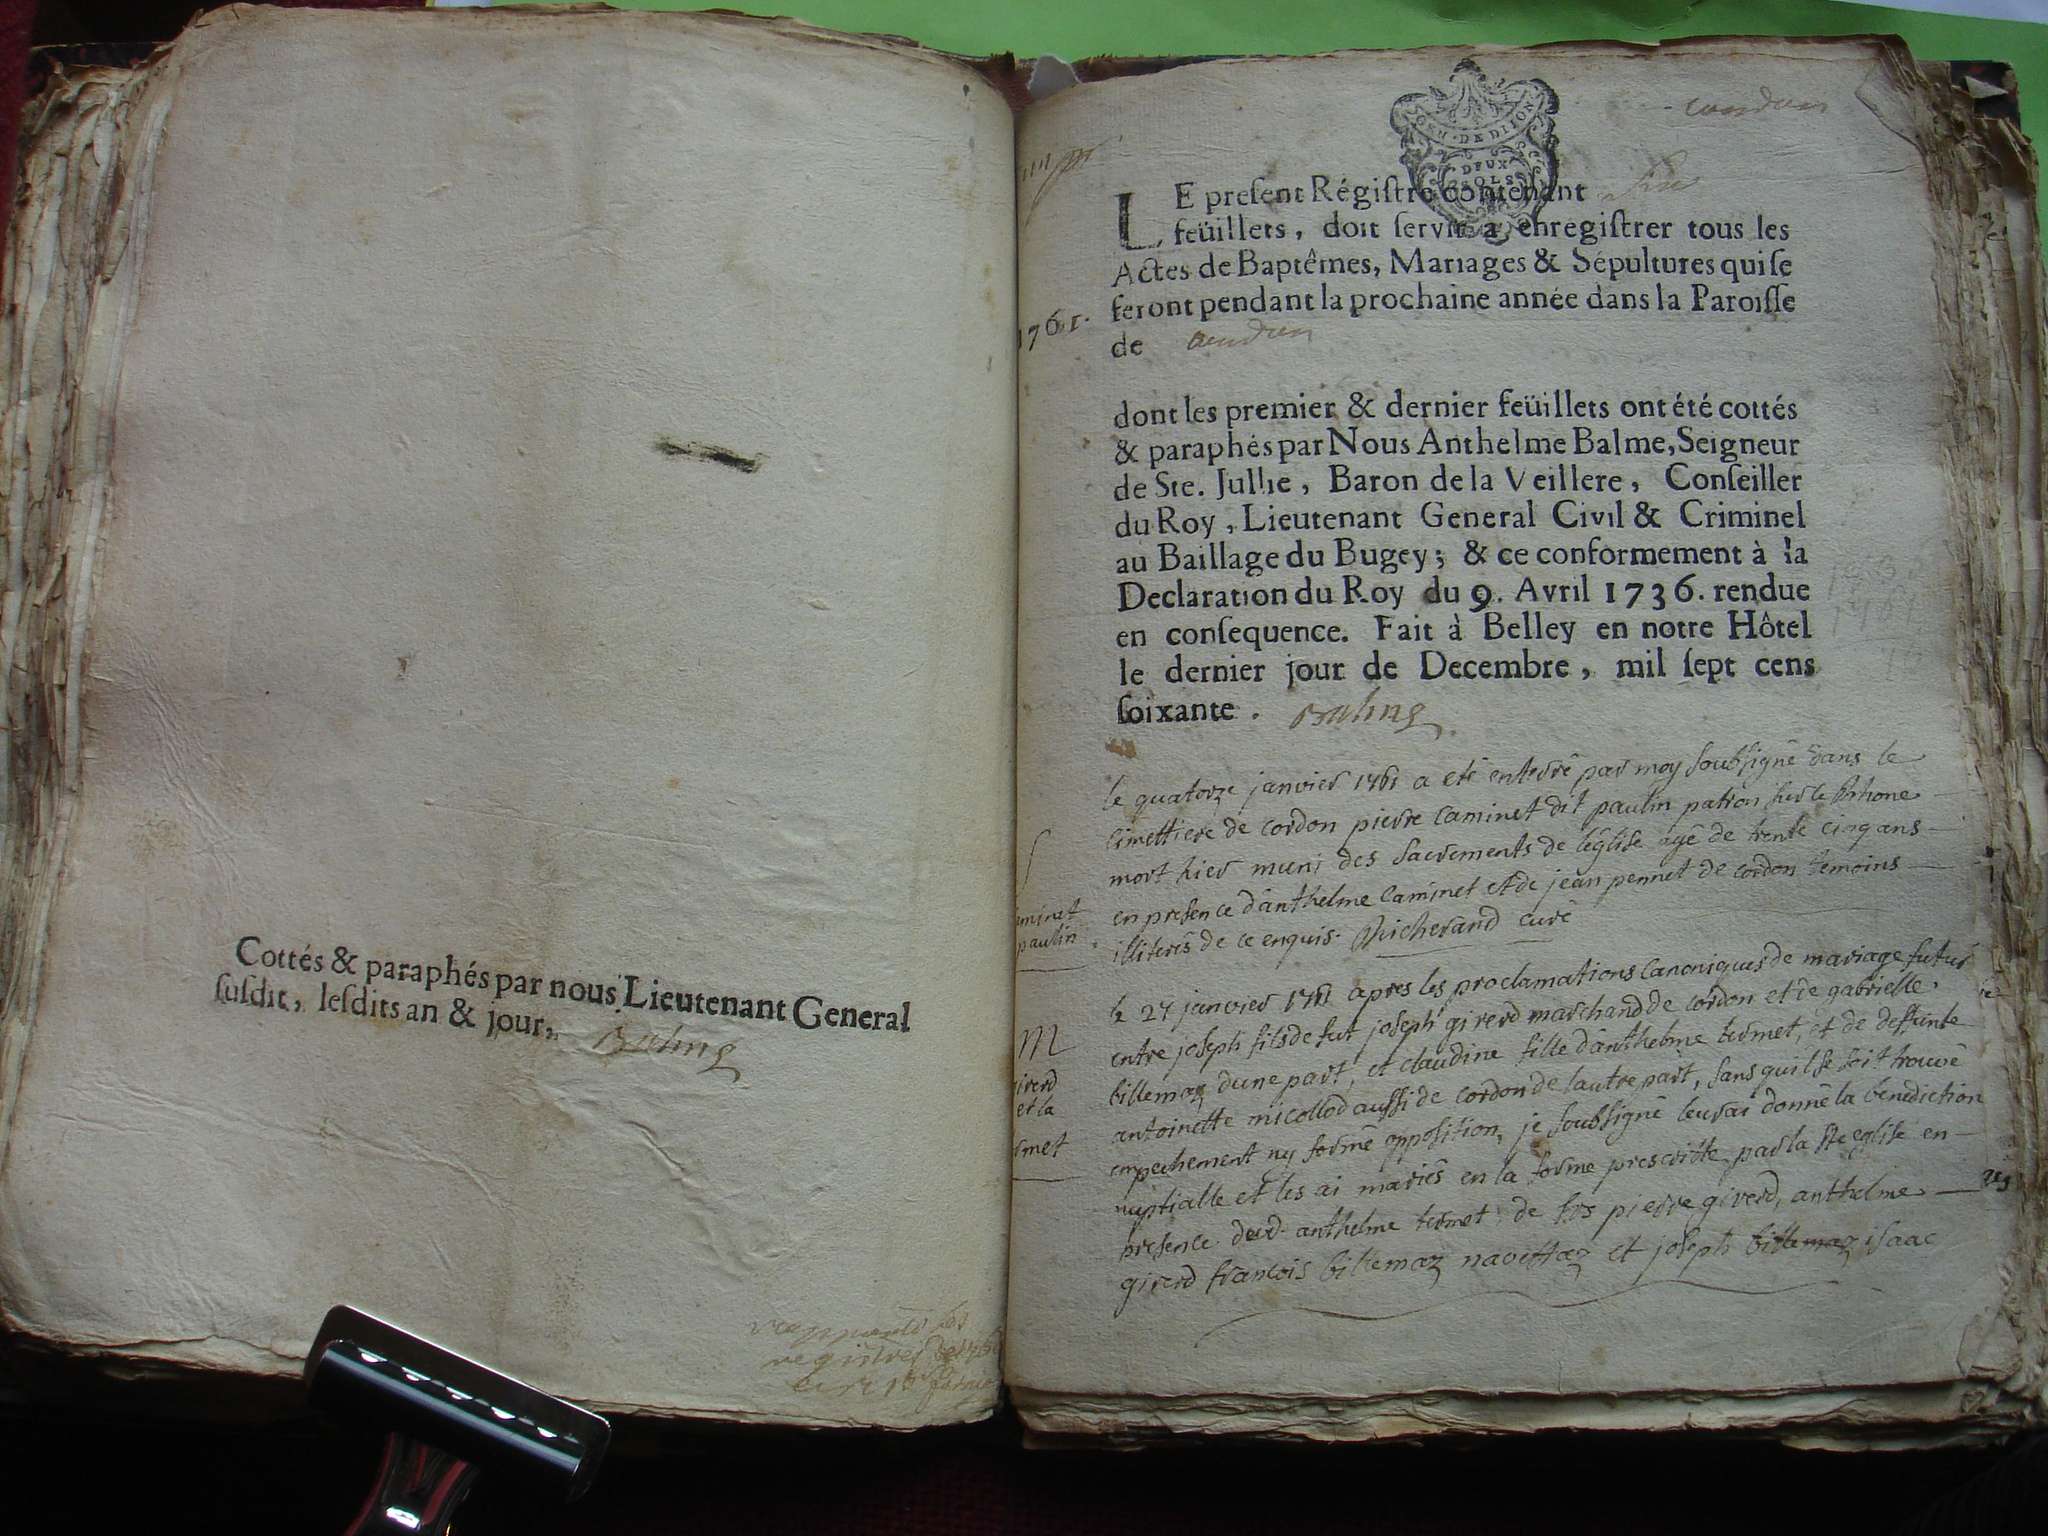 Cottés & paraphés par nous Lieutenant General
ſuſdit, leſdits an & jour,
Balme
GEN. DE DIJON
DEUX
SOLS
LE preſent Régiſtre contenant
feüillets, doit ſervir a enregiſtrer tous les
Actes de Baptêmes, Mariages & Sépultures qui ſe
feront pendant la prochaine année dans la Paroiſſe
1761.
de
dont les premier & dernier feüillets ont été cottés
& paraphés par Nous Anthelme Balme, Seigneur
de Ste. Jullie, Baron de la Veillere, Conſeiller
du Roy, Lieutenant General Civil & Criminel
au Baillage du Bugey; & ce conformement à la
Declaration du Roy du 9. Avril 1736. rendue
en conſequence. Fait à Belley en notre Hôtel
le dernier jour de Decembre, mil ſept cens
ſoixante. Balme
le quatorze janvier 1761 a eté enterré par moy soubsigné dans le
cimettiere de cordon pierre caminet dit paulin patron sur le Rhone
mort hier muni des sacrements de l'église agé de trente cinq ans
en presence d'anthelme caminet et de jean pennet de cordon temoins
illiterés de ce enquis. Richerand curé
minet
paulin
le 27 janvier 1761 apres les proclamations canoniques de mariage futur
entre joseph fils de fut joseph girerd marchand de cordon et de gabrielle
billemaz d'une part, et claudine fille d'anthelme termet, et de deffunte
antoinette micollod aussi de cordon de l'autre part, sans qu'il se soit trouvé
empechement ny formé opposition, je soubsigné leur ai donné la benediction
nuptialle et les ai mariés en la forme prescritte par la ste eglise en
presence dud. anthelme termet, de srs pierre girerd, anthelme
girerd françois billemaz navettaz et joseph billemaz isaac
M
girerd
et la
rmet